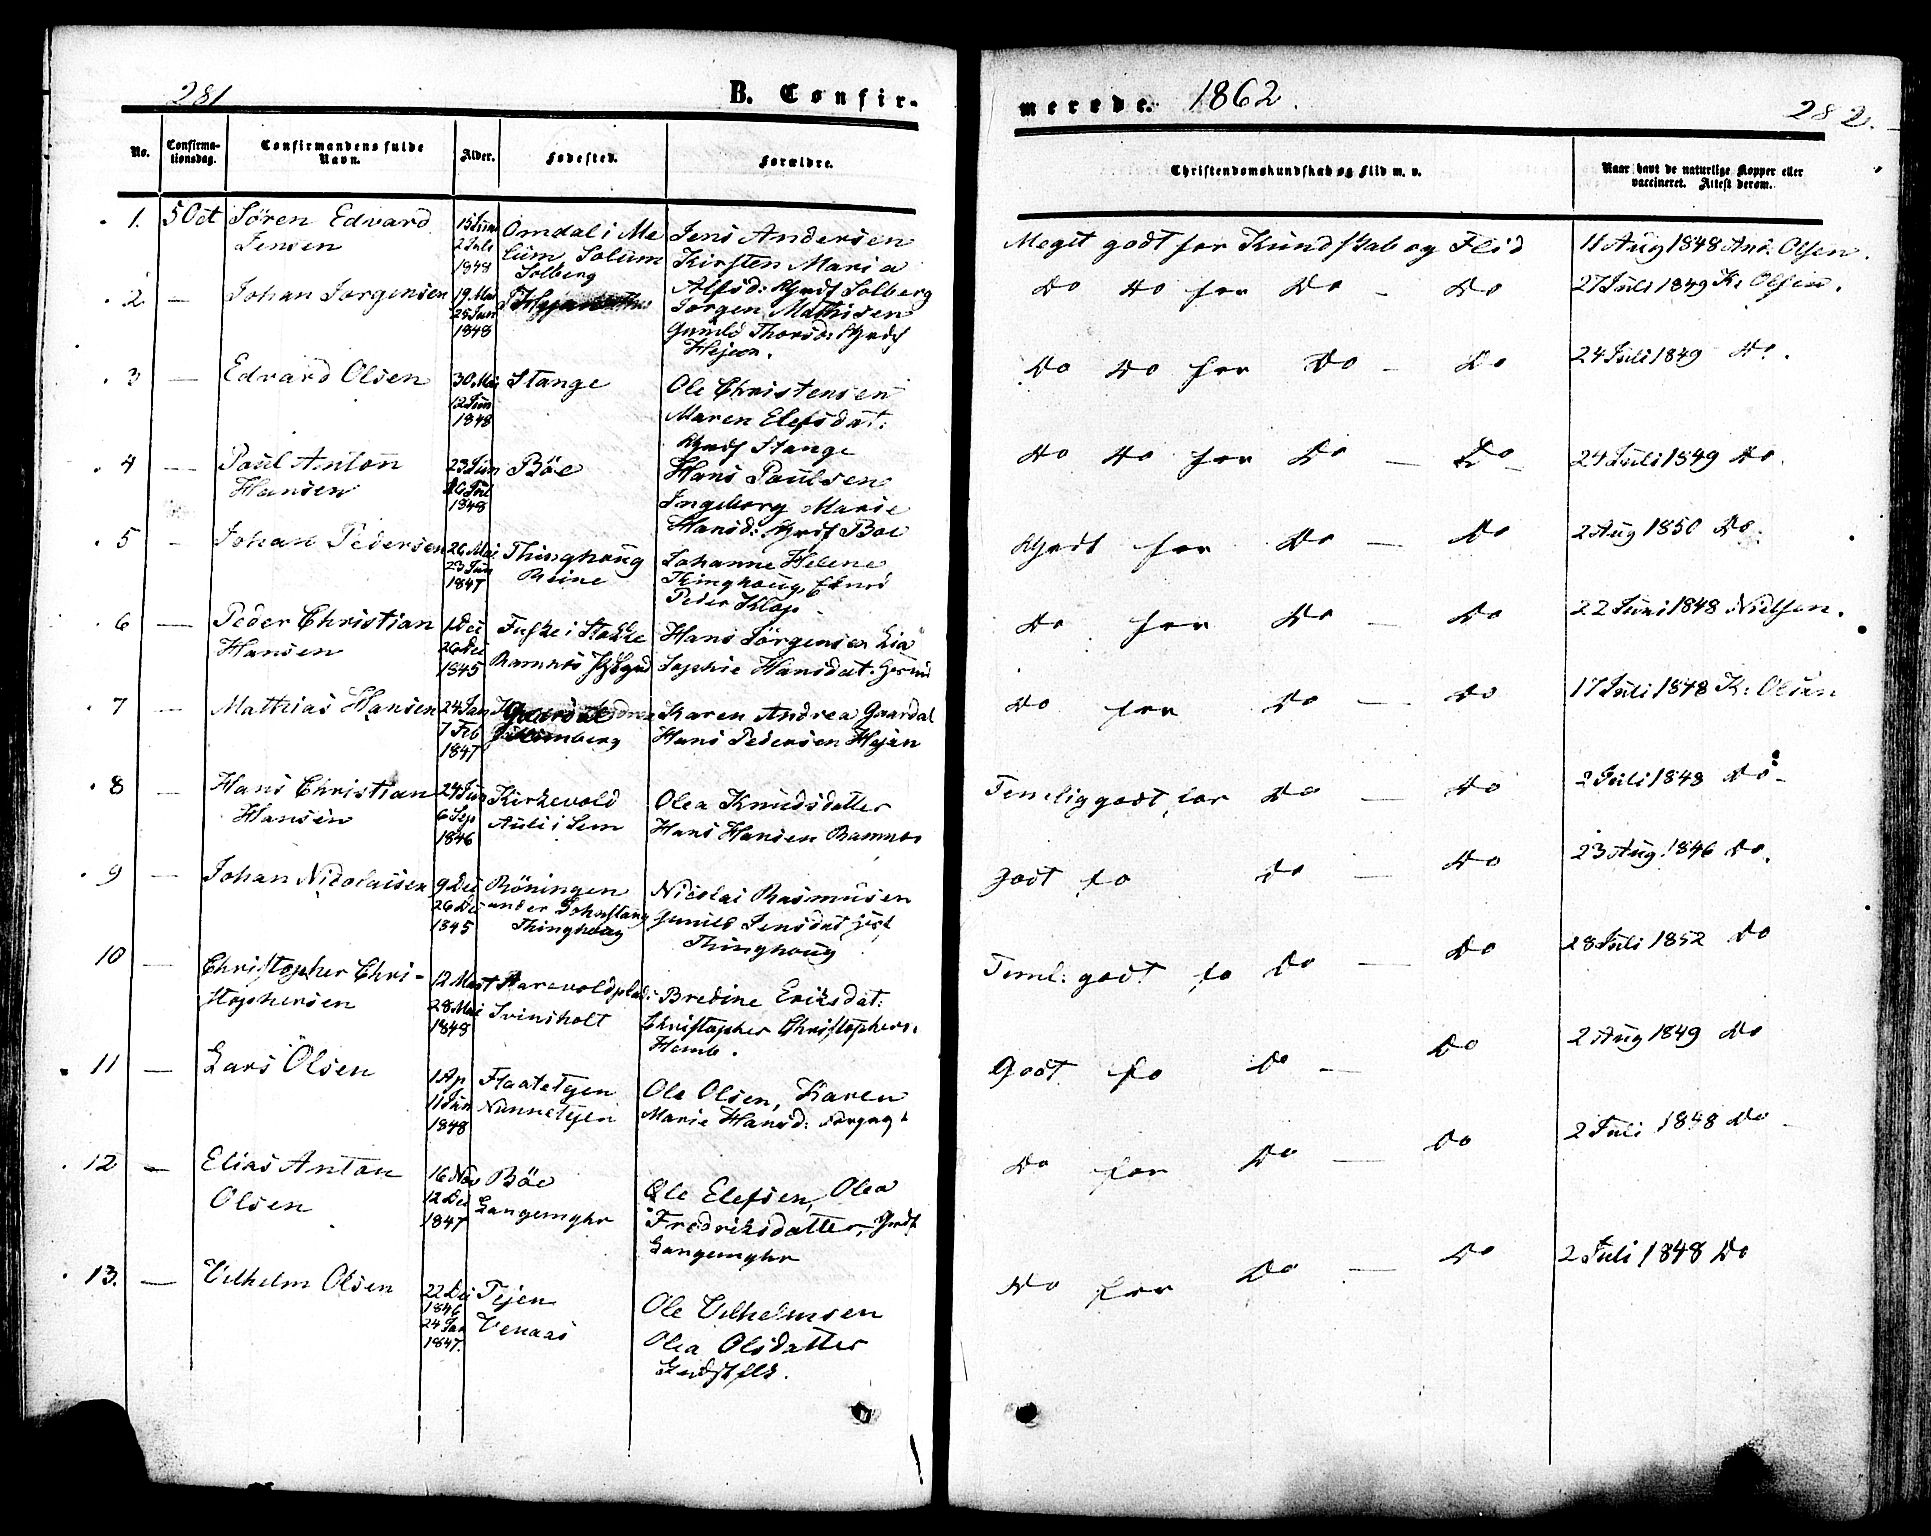 281
B. Confir-
No.
Confirma-
tionsdag.
Confirmandens fulde
Navn.
Alder.
Fødested.
Forældre.
1.
5 Oct
Sören Edvard
Jensen
2 Juli
1848
Omdal i Me
lum Solum
Solberg
Jens Andersen
Kirsten Maria
Alfsd: Solberg
2
—
Johan Jorgensen
19 Mai
25 Jun
1848
Jorgen Mathisen
Gunild Thorsd:
3
—
Edvard Olsen
30 Mai
12 Jun
1848
Stange
Ole Christensen
Maren Elefsdat:
Stange
4
—
Paul Anton
Hansen
23 Jun
16 Jul
1848
Böe
Hans Paulsen
Ingeborg Marie
Hansd: Boe
5
-
Johan Pedersen
26 Mai
23 Jun
1847
Thinghoug
Johanne Helene
Thinghoug
Peder Klop
6
—
Peder Christian
Hansen
1 Dec
26 Dec
1845
Fuske i Stokke
Ramnes
Hans Jörgensen Lia
Sophie Hansdat:
7
—
Mathias Hansen
24 Jan
7 Feb
1847
Gaardal
Karen Andrea Gaardal
Hans Pedersen Hejan
8
—
Hans Christian
Hansen
24 Jun
6 Sep
1846
Kirkevold
Auli i Sem
Olea Knudsdatter
Hans Hansen Ramnes
9
—
Johan Nicolaisen
9 Dec
26 Dec
1845
Röningen
under
Thinghoug
Nicolai Rasmusen
Gunild Jensdat
Thinghoug
10
—
Christopher Chri-
stophersen
12 Mart
28 Mai
1848
Svinsholt
Bredine Eriksdat:
Christopher Christophers.
11
—
Lars Olsen
1 Ap
11 Jun
1848
Flaatetjen
Ole Olsen, Karen
Marie Hansd:
12
—
Elias Anton
Olsen
16 Nov
12 Dec
1847
Böe
Langemyhr
Ole Elefsen, Olea
Fredriksdatter,
Langemyhr
13.
—
Vilhelm Olsen
22 Dec
1846
24 Jan
1847.
Tejen
Venaas
Ole Vilhelmsen
Olea Olsdatter
merede. 1862.
282.
Christendomskundskab og Flid m. v.
Naar havt de naturlige Kopper eller
vaccineret. Attest derom.
Meget godt for Kundskab og Flid
11 Aug 1848 And. Olsen.
Do Do for Do — Do
27 Juli 1849 K. Olsen.
Do Do for Do — Do
24 Juli 1849 Do.
Do Do for Do — Do
24 Juli 1849 Do.
for Do — Do
2 Aug 1850 Do.
Do for Do — Do
22 Juni 1848 Nielsen.
Do for Do — Do
17 Juli 1848 K: Olsen
Temelig godt for Do — Do
2 Juli 1848 Do
godt fo Do — Do
23 Aug. 1846 Do.
Teml: godt fo Do — Do
28 Juli 1852 Do
Godt fo Do — Do
2 Aug 1849 Do
Do for Do — Do
2 Juli 1848 Do
Do for Do — Do
2 Juli 1848 Do